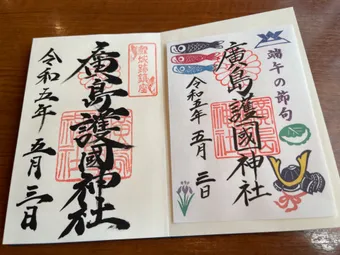 廣島護國神社
令和五年
五月三日
端午の節句
廣島護國神社
令和五年五月三日